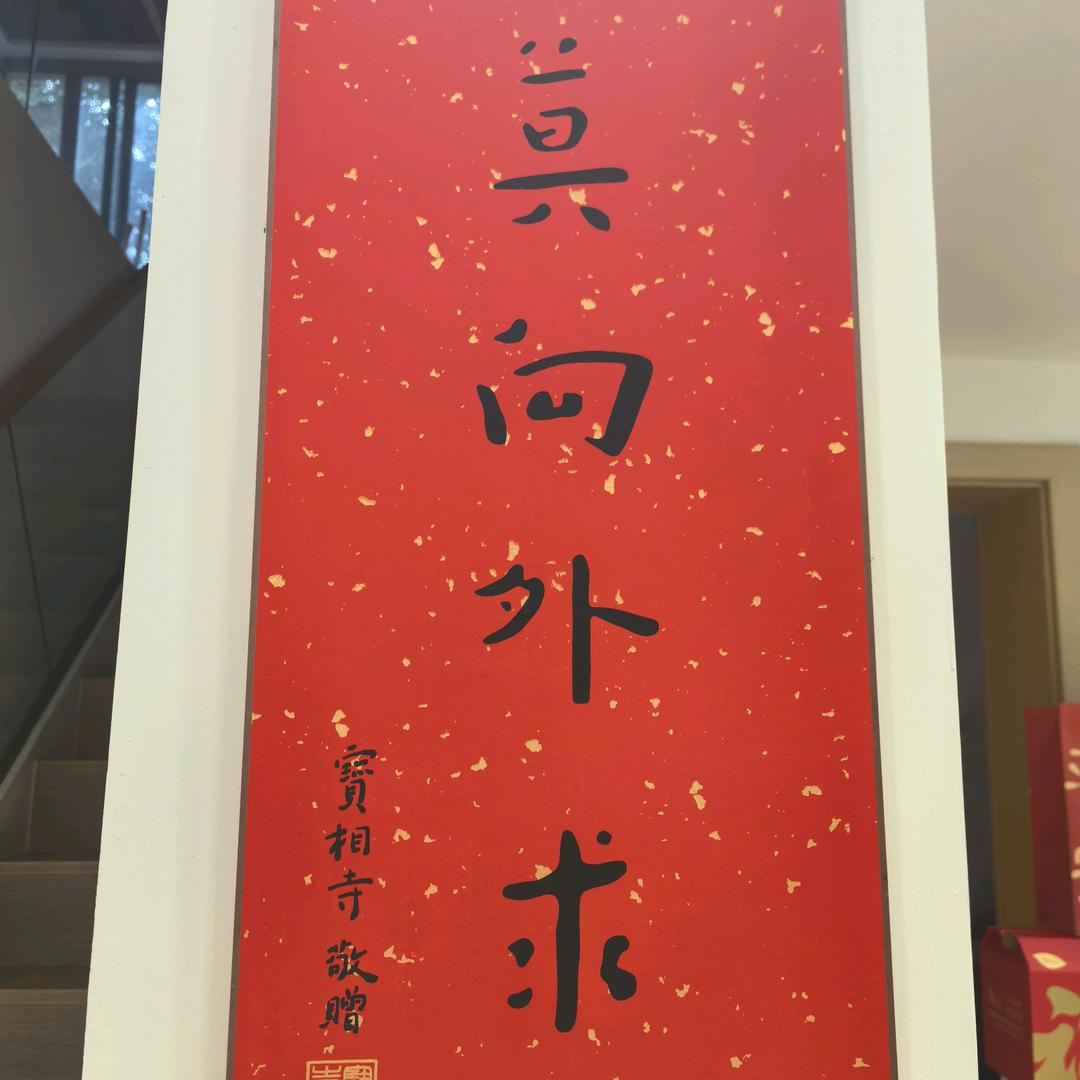 莫向外求
寶相寺敬贈